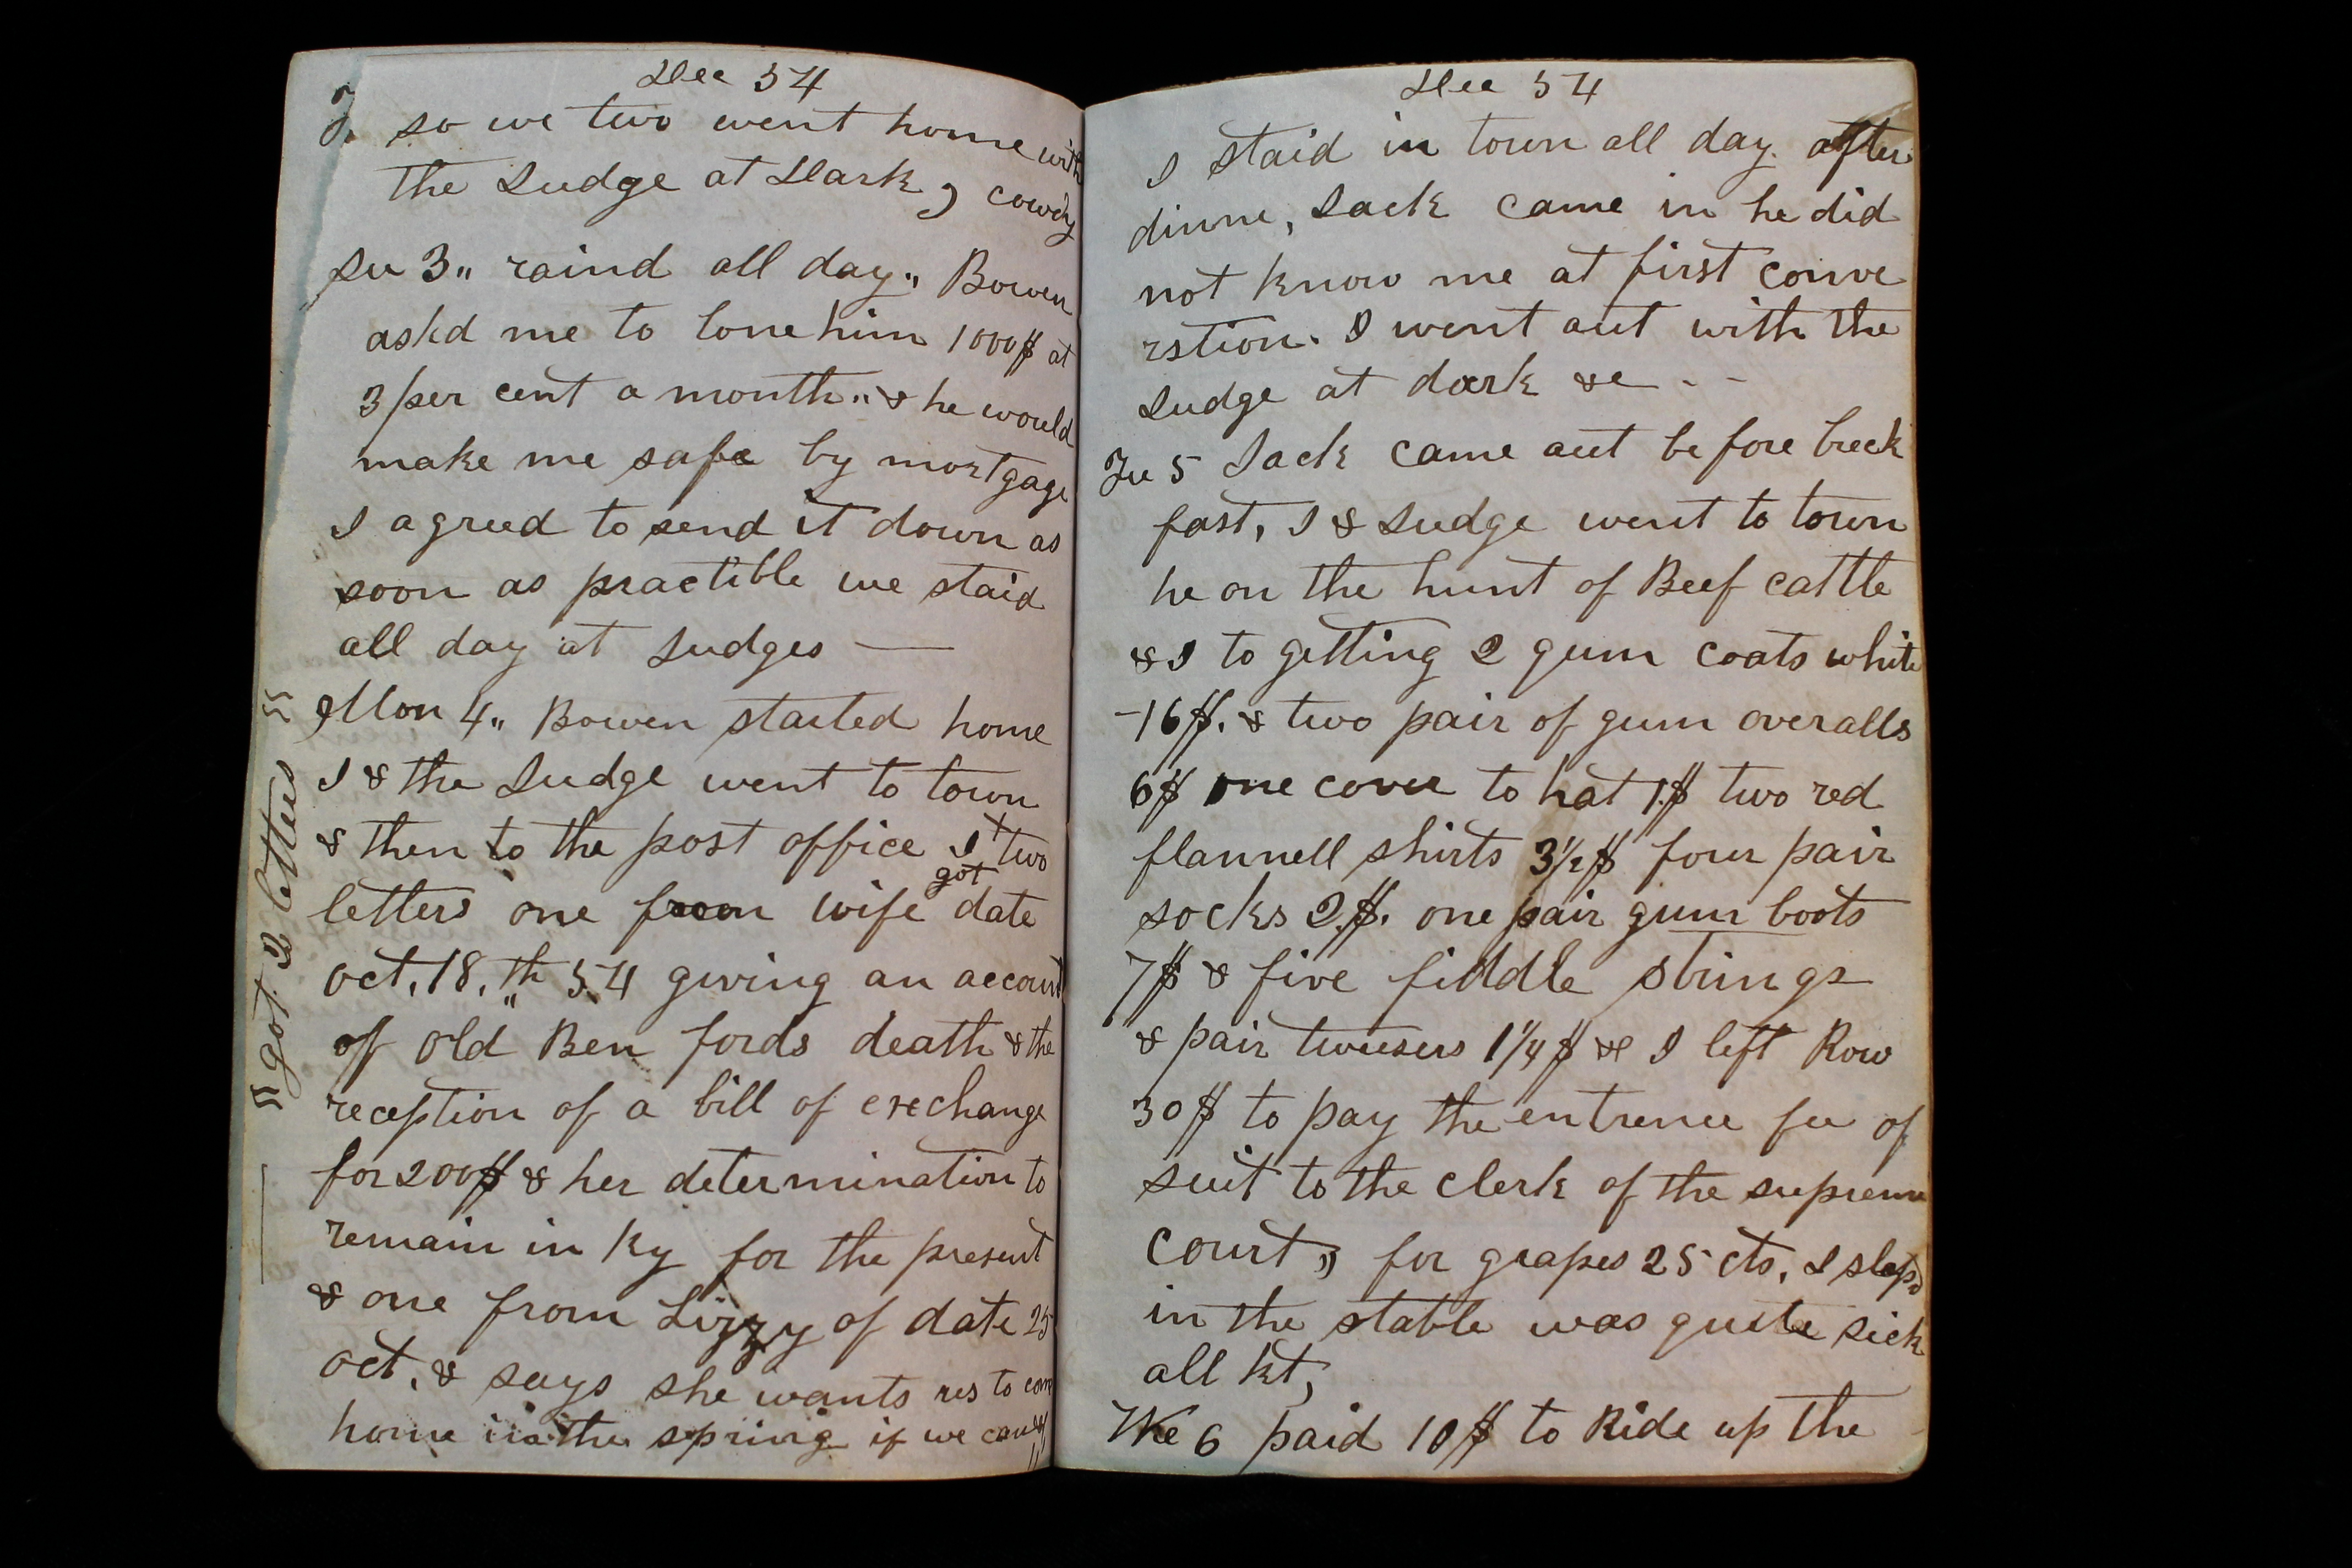 Dec 54
so we two went home with
the Judge at Dark, cowdy
Su 3„ raind all day„ Bowen
askd me to lone him 1000$ at
3 per cent a month„ & he would
make me safe by mortgage
I agreed to send it down as
soon as practible we staid
all day at Judges —
Mon 4„ Bowen started home
I & the Judge went to town
& then to the post office I + two
got
letters one from wife date
oct. 18.th 54 giving an account
of old Ben fords death & the
reception of a bill of exechange
for 200$ & her determination to
remain in Ky for the present
& one from Lizzy of date 25
oct. & says she wants us to come
home in the spring if we can
got 2 letters
Dec 54
I staid in town all day. after
dinne, Jack came in he did
not know me at first conve
rstion. I went out with the
Judge at dark &c - -
Tu 5 Jack came out before breck
fast, I & Judge went to town
he on the hunt of Beef cattle
& I to getting 2 gum coats white
-16$. & two pair of gum overalls
6$ one cover to hat 1.$ two red
flannell shirts 3½$ four pair
socks 2.$. one pair gum boots
7$ & five fiddle strings
& pair tweesers 1¼$ &c I left Row
30$ to pay the entrence fee of
suit to the clerk of the supreme
court, for grapes 25 cts. I slept
in the stable was quite sick
all nt,
We 6 paid 10$ to Ride up the